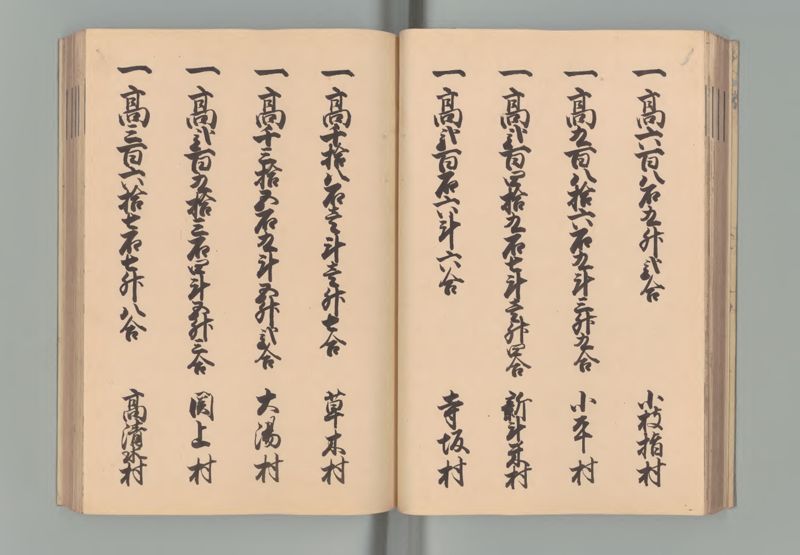 一高六百八石九升弐合 小枝指村
一高九百八拾六石九斗三升九合 小平村
一高弐百四拾九石七斗壱升四合 新斗米村
一高弐百石六斗六合 寺坂村
一高千拾八石壱斗壱升七合 草木村
一高千三拾五石九斗五升弐合 大湯村
一高弐百九拾三石四斗五升三合 関上村
一高三百六拾七石七升八合 高清水村